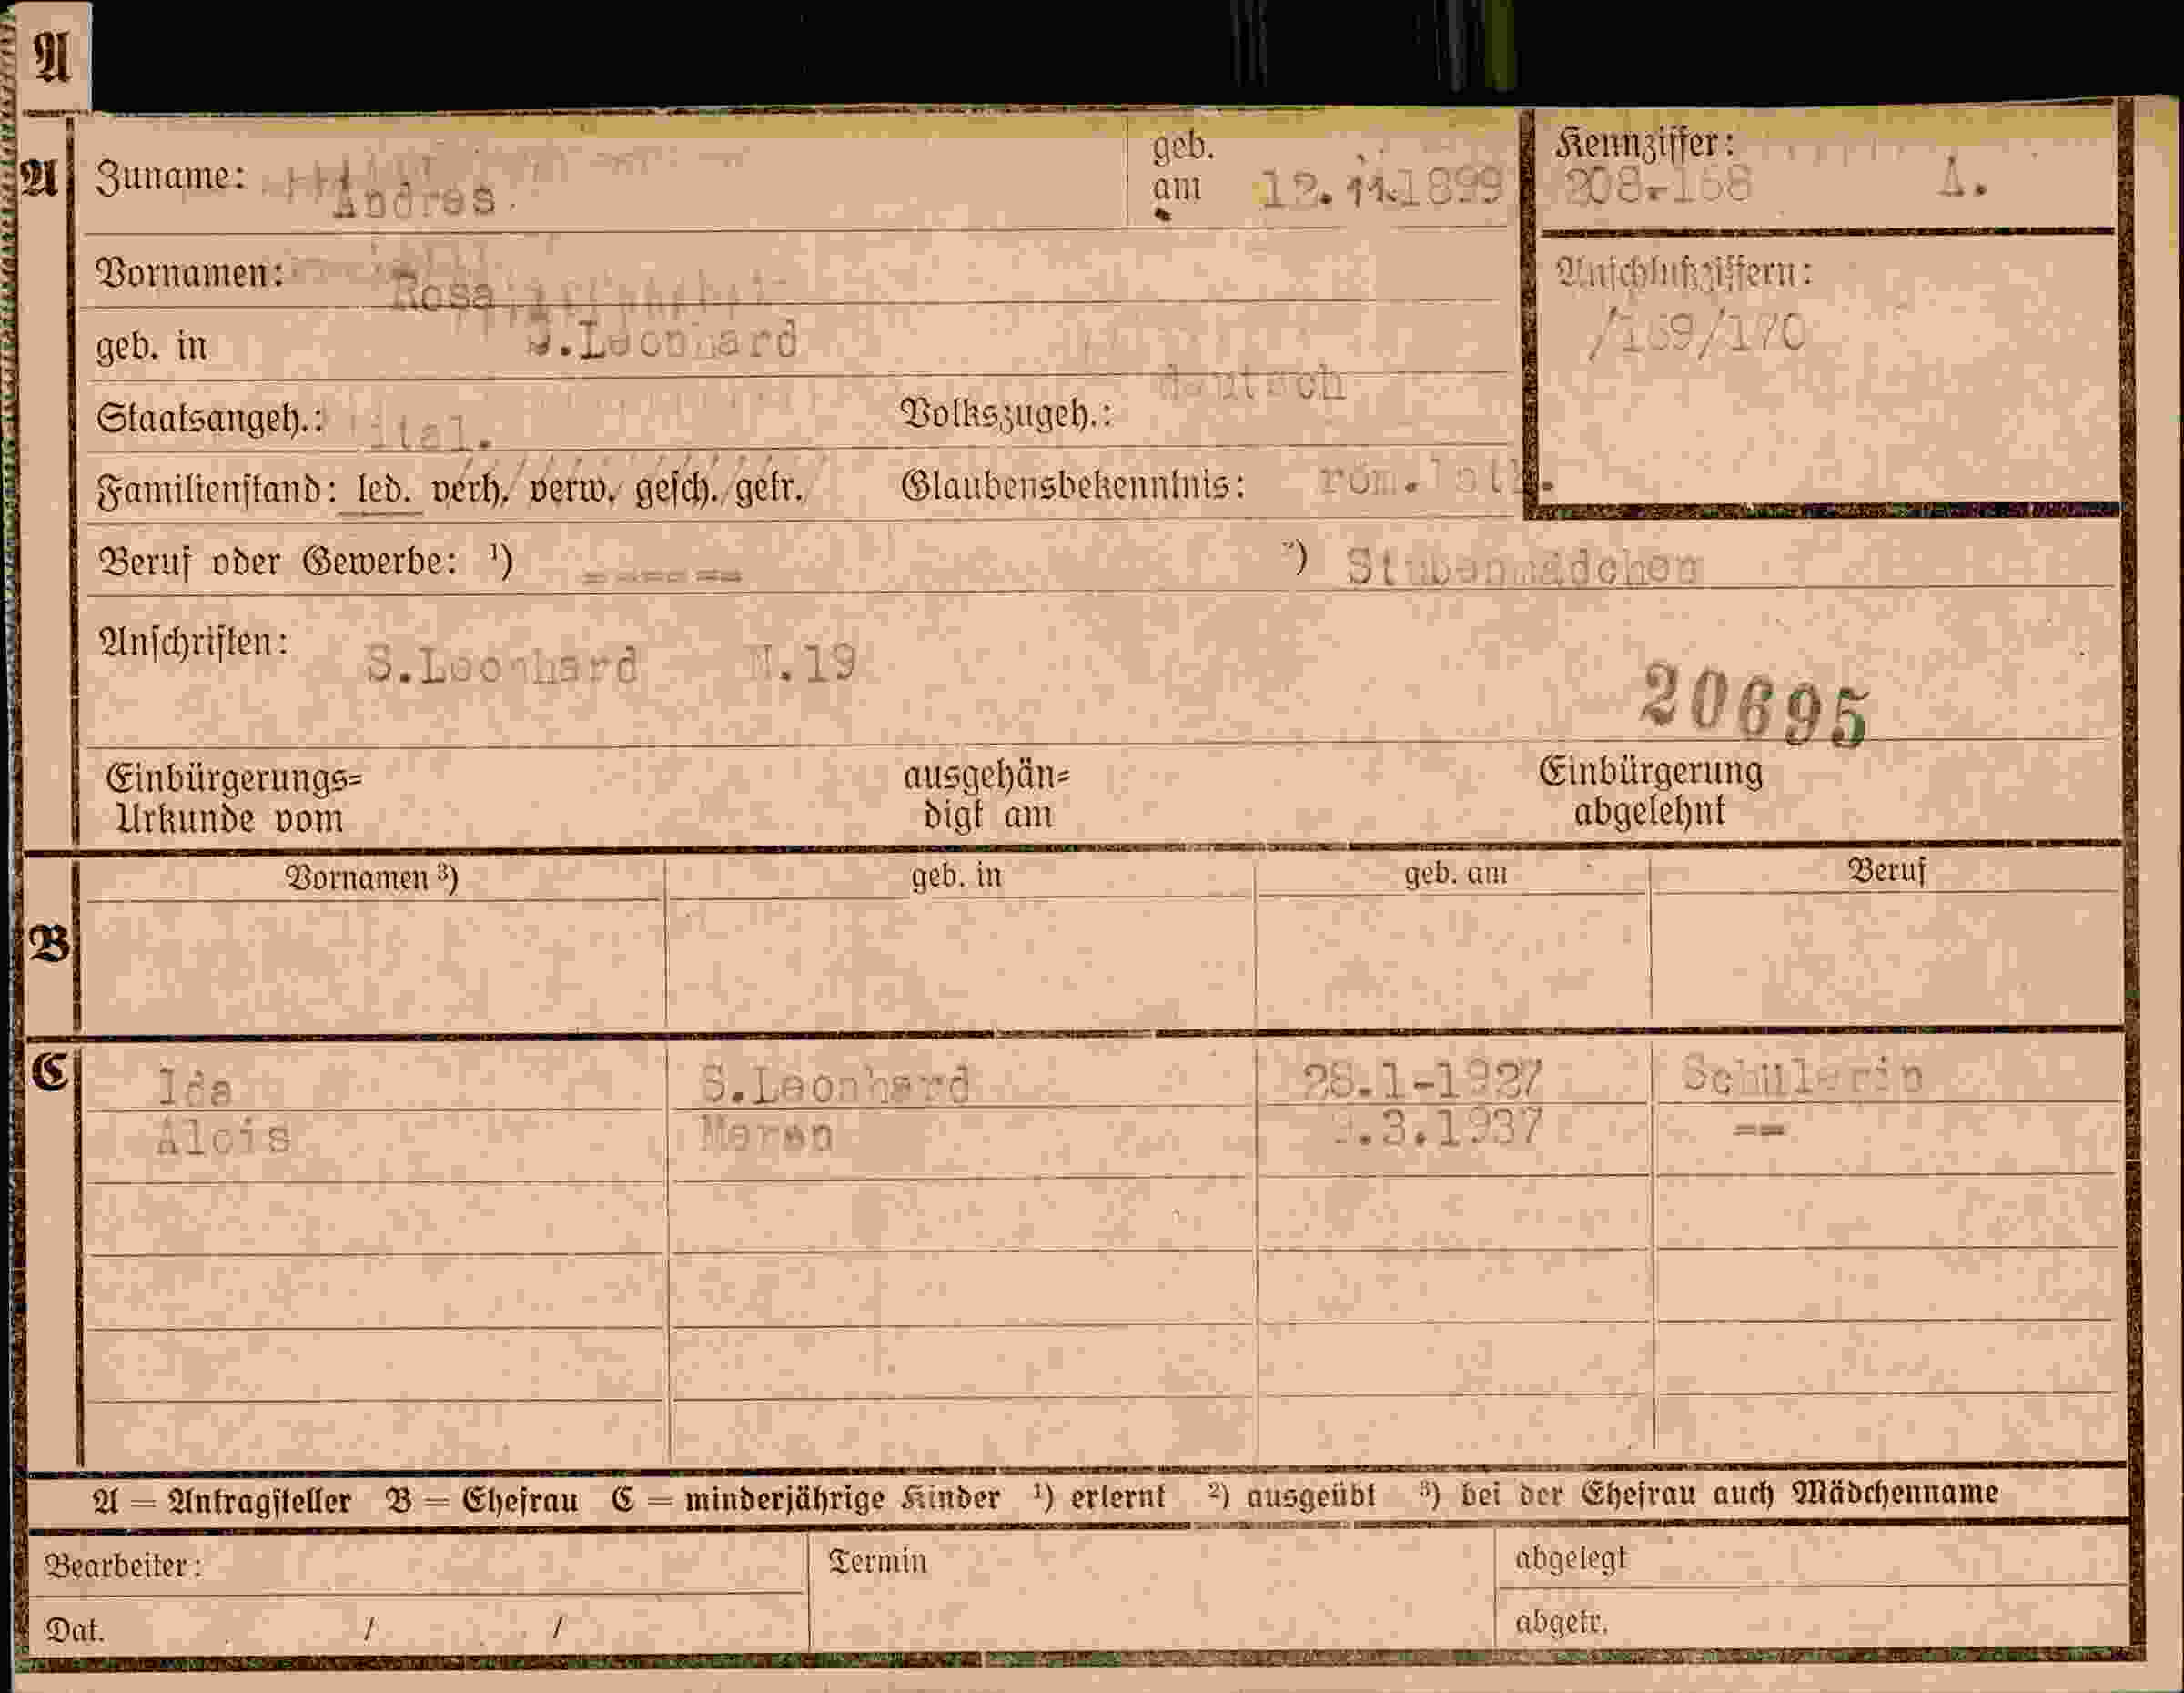 A
A Zuname: Andres. geb. am 12.11.1899 Kennziffer: 208-168 A.
Vornamen: Rosa Anschlußziffern:
geb. in S.Leonhard /169/170
Staatsangeh.: ital. Volkszugeh.: deutsch
Familienstand: led. verh. verw. gesch. getr. Glaubensbekenntnis: röm.kath.
Beruf oder Gewerbe: ¹) ----- ²) Stubenmädchen
Anschriften: S.Leonhard N.19
20695
Einbürgerungs= ausgehän= Einbürgerung
Urkunde vom digt am abgelehnt
Vornamen ³) geb. in geb. am Beruf
B
C Ida S.Leonhard 28.1-1927 Schülerin
Alois Meran .3.1937 --
A = Antragsteller B = Ehefrau C = minderjährige Kinder ¹) erlernt ²) ausgeübt ³) bei der Ehefrau auch Mädchenname
Bearbeiter: Termin abgelegt
Dat. / / abgetr.